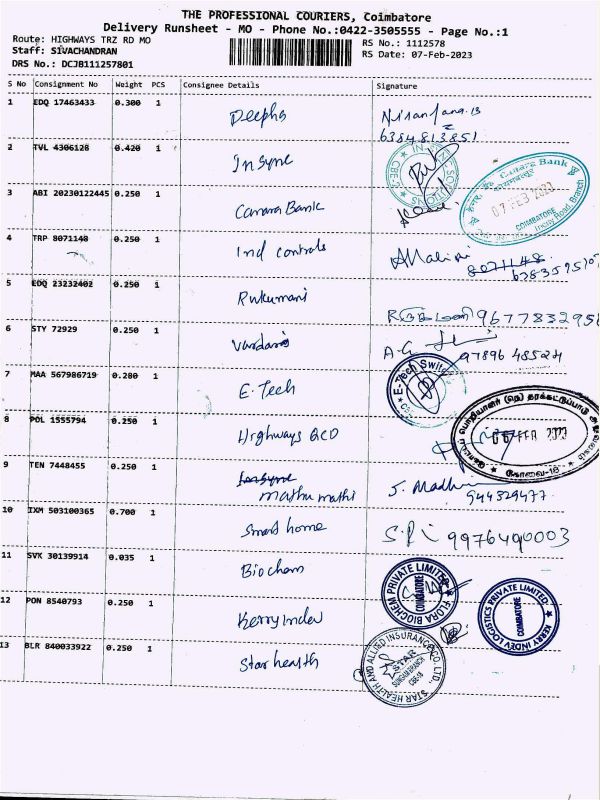 THE PROFESSIONAL COURIERS, Coimbatore
Delivery Runsheet - MO - Phone No.:0422-3505555 - Page No.:1
Route: HIGHWAYS TRZ RD MO
RS No.: 1112578
Staff: SIVACHANDRAN
RS Date: 07-Feb-2023
DRS No.: DCJB111257801
S No Consignment No Weight PCS Consignee Details Signature
1 EDQ 17463433 0.300 1 Deepha
6384813851
2 TVL 4306128 0.420 1 Insync
3 ABI 20230122445 0.250 1 Canara Bank
Canara Bank
07 FEB 2023
COIMBATORE
4 TRP 8071148 0.250 1 Ind controls
AMalini
8071148
5 EDQ 23232402 0.250 1 Rukumani
6 STY 72929 0.250 1
A-G
97896 48524
7 MAA 567986719 0.280 1 E. Tech
E-Tech
8 POL 1555794 0.250 1 Highways QCD
FEB 2023
கோவை-18
9 TEN 7448455 0.250 1 Insync
mathumathi
10 IXM 503100365 0.700 1 Smart home
9976490003
11 SVK 30139914 0.035 1 Biochem
FLORA BIOCHEM PRIVATE LIMITED
COIMBATORE
12 PON 8540793 0.250 1 Kerry Indev
KERRY INDEV LOGISTICS PRIVATE LIMITED
COIMBATORE
13 BLR 840033922 0.250 1 Star health
STAR HEALTH AND ALLIED INSURANCE CO. LTD.
STAR